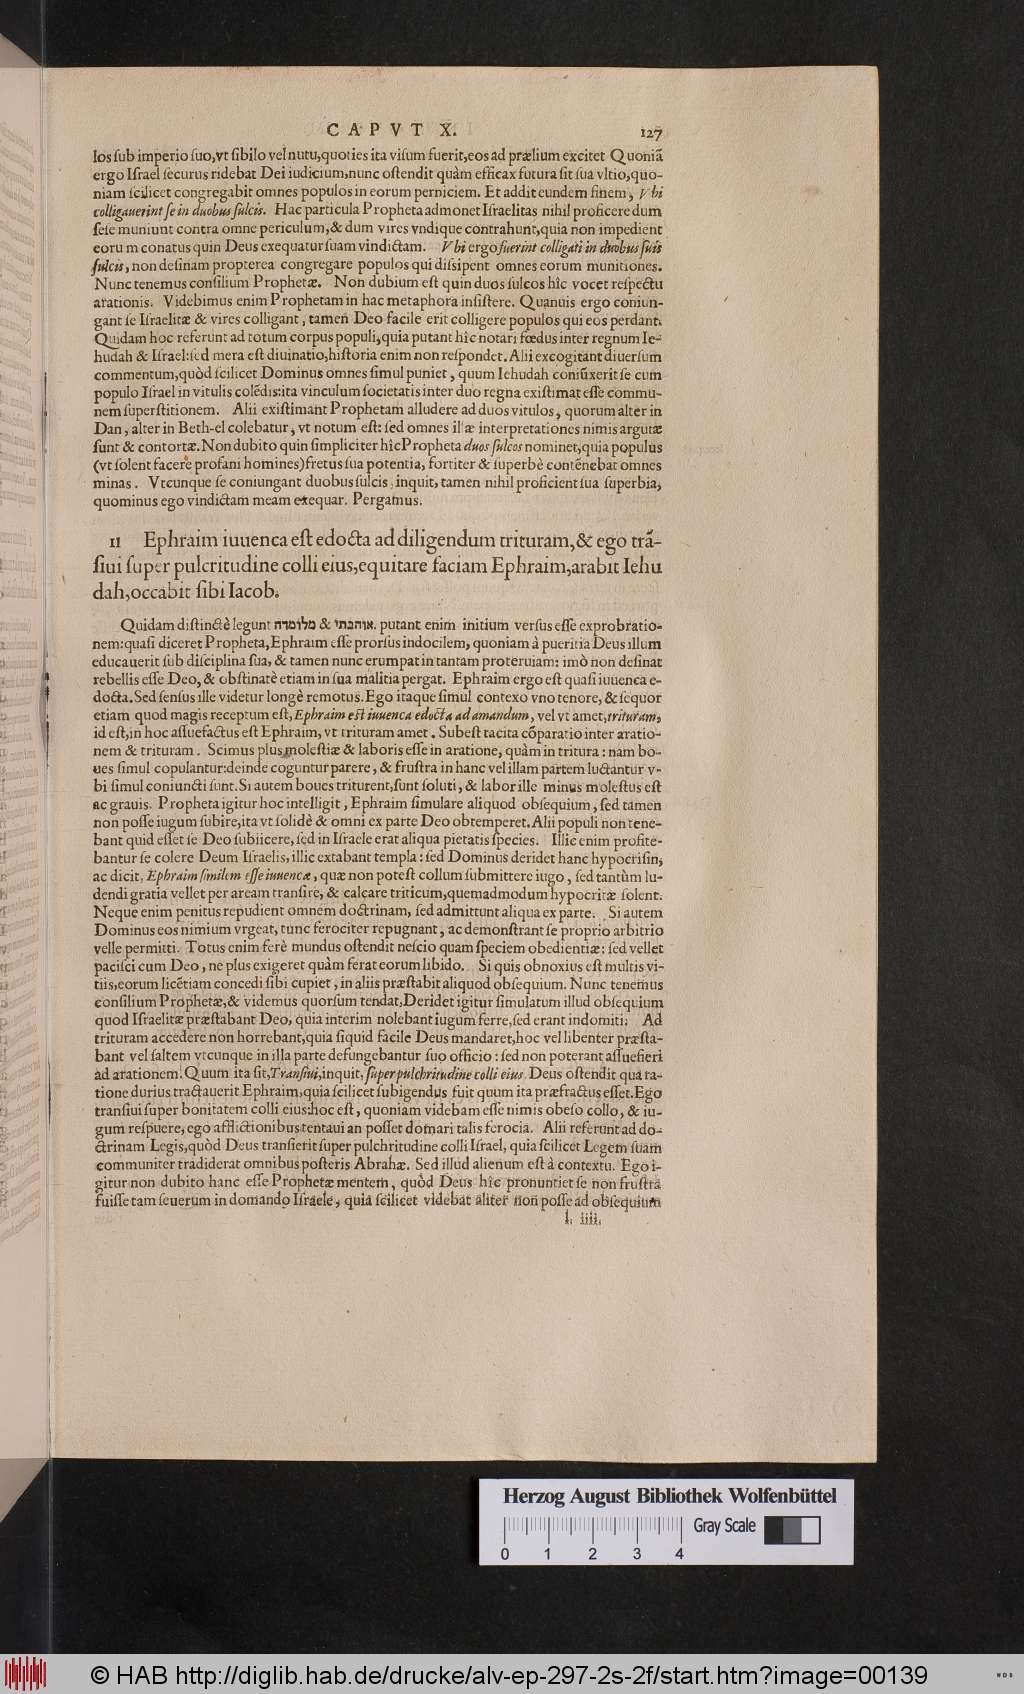 CAPVT X. 127
los sub imperio suo, vt sibilo vel nutu, quoties ita visum fuerit, eos ad prælium excitet Quoniã
ergo Israel securus ridebat Dei iudicium, nunc ostendit quàm efficax futura sit sua vltio, quo-
niam scilicet congregabit omnes populos in eorum perniciem. Et addit eundem finem, Vbi
colligauerint se in duobus sulcis. Hac particula Propheta admonet Israelitas nihil proficere dum
sese muniunt contra omne periculum, & dum vires vndique contrahunt, quia non impedient
eorum conatus quin Deus exequatur suam vindictam. Vbi ergo fuerint colligati in duobus suis
sulcis, non desinam propterea congregare populos qui dissipent omnes eorum munitiones.
Nunc tenemus consilium Prophetæ. Non dubium est quin duos sulcos hîc vocet respectu
arationis. Videbimus enim Prophetam in hac metaphora insistere. Quanuis ergo coniun-
gant se Israelitæ & vires colligant, tamen Deo facile erit colligere populos qui eos perdant.
Quidam hoc referunt ad totum corpus populi, quia putant hîc notari fœdus inter regnum Ie-
hudah & Israel: sed mera est diuinatio, historia enim non respondet. Alii excogitant diuersum
commentum, quòd scilicet Dominus omnes simul puniet, quum Iehudah coniũxerit se cum
populo Israel in vitulis colẽdis: ita vinculum societatis inter duo regna existimat esse commu-
nem superstitionem. Alii existimant Prophetam alludere ad duos vitulos, quorum alter in
Dan, alter in Beth-el colebatur, vt notum est: sed omnes illæ interpretationes nimis argutæ
sunt & contortæ. Non dubito quin simpliciter hîc Propheta duos sulcos nominet, quia populus
(vt solent facere profani homines) fretus sua potentia, fortiter & superbè contẽnebat omnes
minas. Vtcunque se coniungant duobus sulcis, inquit, tamen nihil proficient sua superbia,
quominus ego vindictam meam exequar. Pergamus.
11 Ephraim iuuenca est edocta ad diligendum trituram, & ego trã-
siui super pulcritudine colli eius, equitare faciam Ephraim, arabit Iehu
dah, occabit sibi Iacob.
Quidam distinctè legunt מלומדה & אוהבתי. putant enim initium versus esse exprobratio-
nem: quasi diceret Propheta, Ephraim esse prorsus indocilem, quoniam à pueritia Deus illum
educauerit sub disciplina sua, & tamen nunc erumpat in tantam proteruiam: imò non desinat
rebellis esse Deo, & obstinatè etiam in sua malitia pergat. Ephraim ergo est quasi iuuenca e-
docta. Sed sensus ille videtur longè remotus. Ego itaque simul contexo vno tenore, & sequor
etiam quod magis receptum est, Ephraim est iuuenca edocta ad amandum, vel vt amet, trituram,
id est, in hoc assuefactus est Ephraim, vt trituram amet. Subest tacita cõparatio inter aratio-
nem & trituram. Scimus plus molestiæ & laboris esse in aratione, quàm in tritura: nam bo-
ues simul copulantur: deinde coguntur parere, & frustra in hanc vel illam partem luctantur v-
bi simul coniuncti sunt. Si autem boues triturent, sunt soluti, & labor ille minus molestus est
ac grauis. Propheta igitur hoc intelligit, Ephraim simulare aliquod obsequium, sed tamen
non posse iugum subire, ita vt solidè & omni ex parte Deo obtemperet. Alii populi non tene-
bant quid esset se Deo subiicere, sed in Israele erat aliqua pietatis species. Illic enim profite-
bantur se colere Deum Israelis, illic extabant templa: sed Dominus deridet hanc hypocrisin,
ac dicit, Ephraim similem esse iuuencæ, quæ non potest collum submittere iugo, sed tantùm lu-
dendi gratia vellet per aream transire, & calcare triticum, quemadmodum hypocritæ solent.
Neque enim penitus repudient omnem doctrinam, sed admittunt aliqua ex parte. Si autem
Dominus eos nimium vrgeat, tunc ferociter repugnant, ac demonstrant se proprio arbitrio
velle permitti. Totus enim ferè mundus ostendit nescio quam speciem obedientiæ: sed vellet
pacisci cum Deo, ne plus exigeret quàm ferat eorum libido. Si quis obnoxius est multis vi-
tiis, eorum licẽtiam concedi sibi cupiet, in aliis præstabit aliquod obsequium. Nunc tenemus
consilium Prophetæ, & videmus quorsum tendat, Deridet igitur simulatum illud obsequium
quod Israelitæ præstabant Deo, quia interim nolebant iugum ferre, sed erant indomiti. Ad
trituram accedere non horrebant, quia siquid facile Deus mandaret, hoc vel libenter præsta-
bant vel saltem vtcunque in illa parte defungebantur suo officio: sed non poterant assuefieri
ad arationem. Quum ita sit, Transiui, inquit, super pulchritudine colli eius. Deus ostendit qua ra-
tione durius tractauerit Ephraim, quia scilicet subigendus fuit quum ita præfractus esset. Ego
transiui super bonitatem colli eius: hoc est, quoniam videbam esse nimis obeso collo, & iu-
gum respuere, ego afflictionibus tentaui an posset domari talis ferocia. Alii referunt ad do-
ctrinam Legis, quòd Deus transierit super pulchritudine colli Israel, quia scilicet Legem suam
communiter tradiderat omnibus posteris Abrahæ. Sed illud alienum est à contextu. Ego i-
gitur non dubito hanc esse Prophetæ mentem, quòd Deus hîc pronuntiet se non frustrà
fuisse tam seuerum in domando Israele, quia scilicet videbat aliter non posse ad obsequium
l. iiii.
Herzog August Bibliothek Wolfenbüttel
Gray Scale
0 1 2 3 4
© HAB http://diglib.hab.de/drucke/alv-ep-297-2s-2f/start.htm?image=00139
WDB